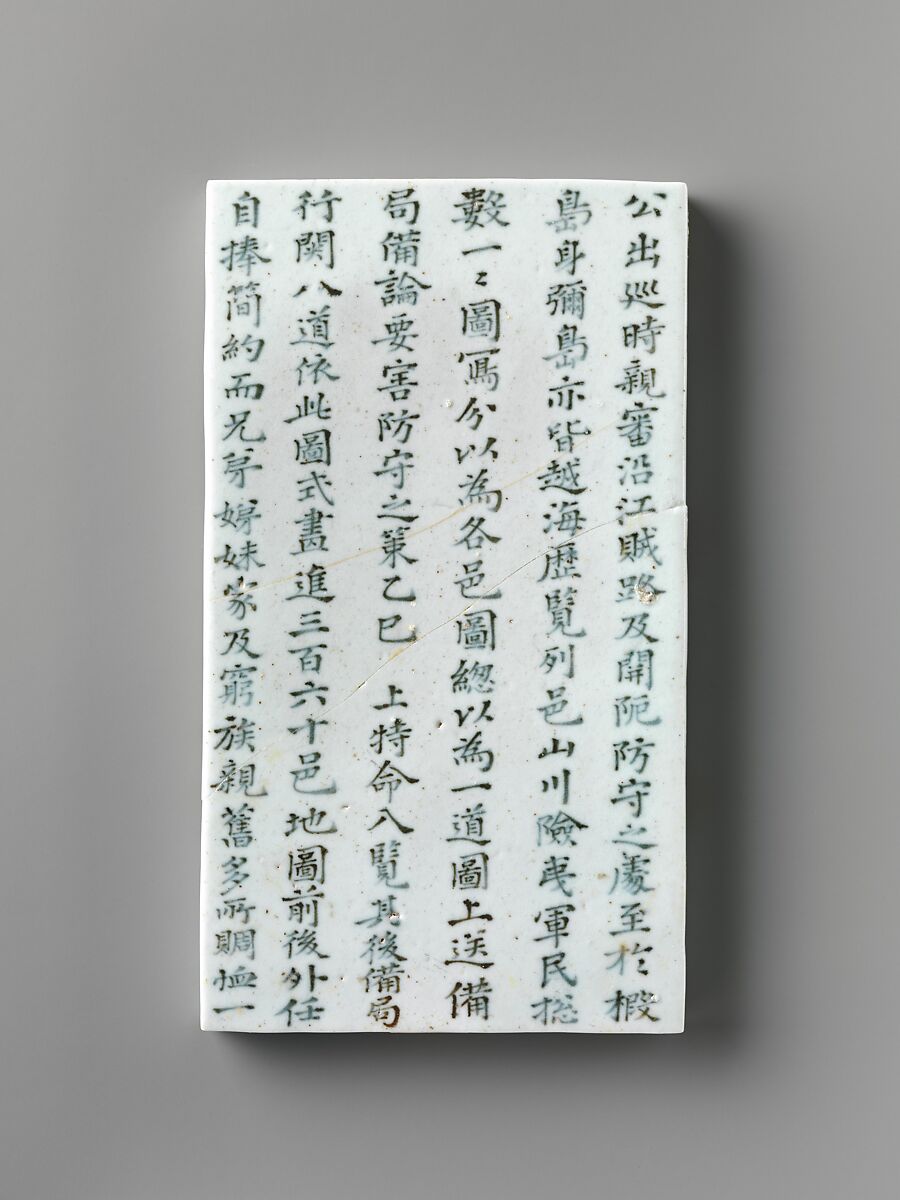 公出廵時親審沿江賊路及開阨防守之處至於椵
島身彌島亦皆越海歷覽列邑山川險夷軍民摠
數一〻圖寫分以為各邑圖緫以為一道圖上送備
局備論要害防守之策乙巳 上特命入覽其後備局
行関八道依此圖式畫進三百六十邑地圖前後外任
自捧簡約而兄弟娣妹家及窮族親舊多所賙恤一